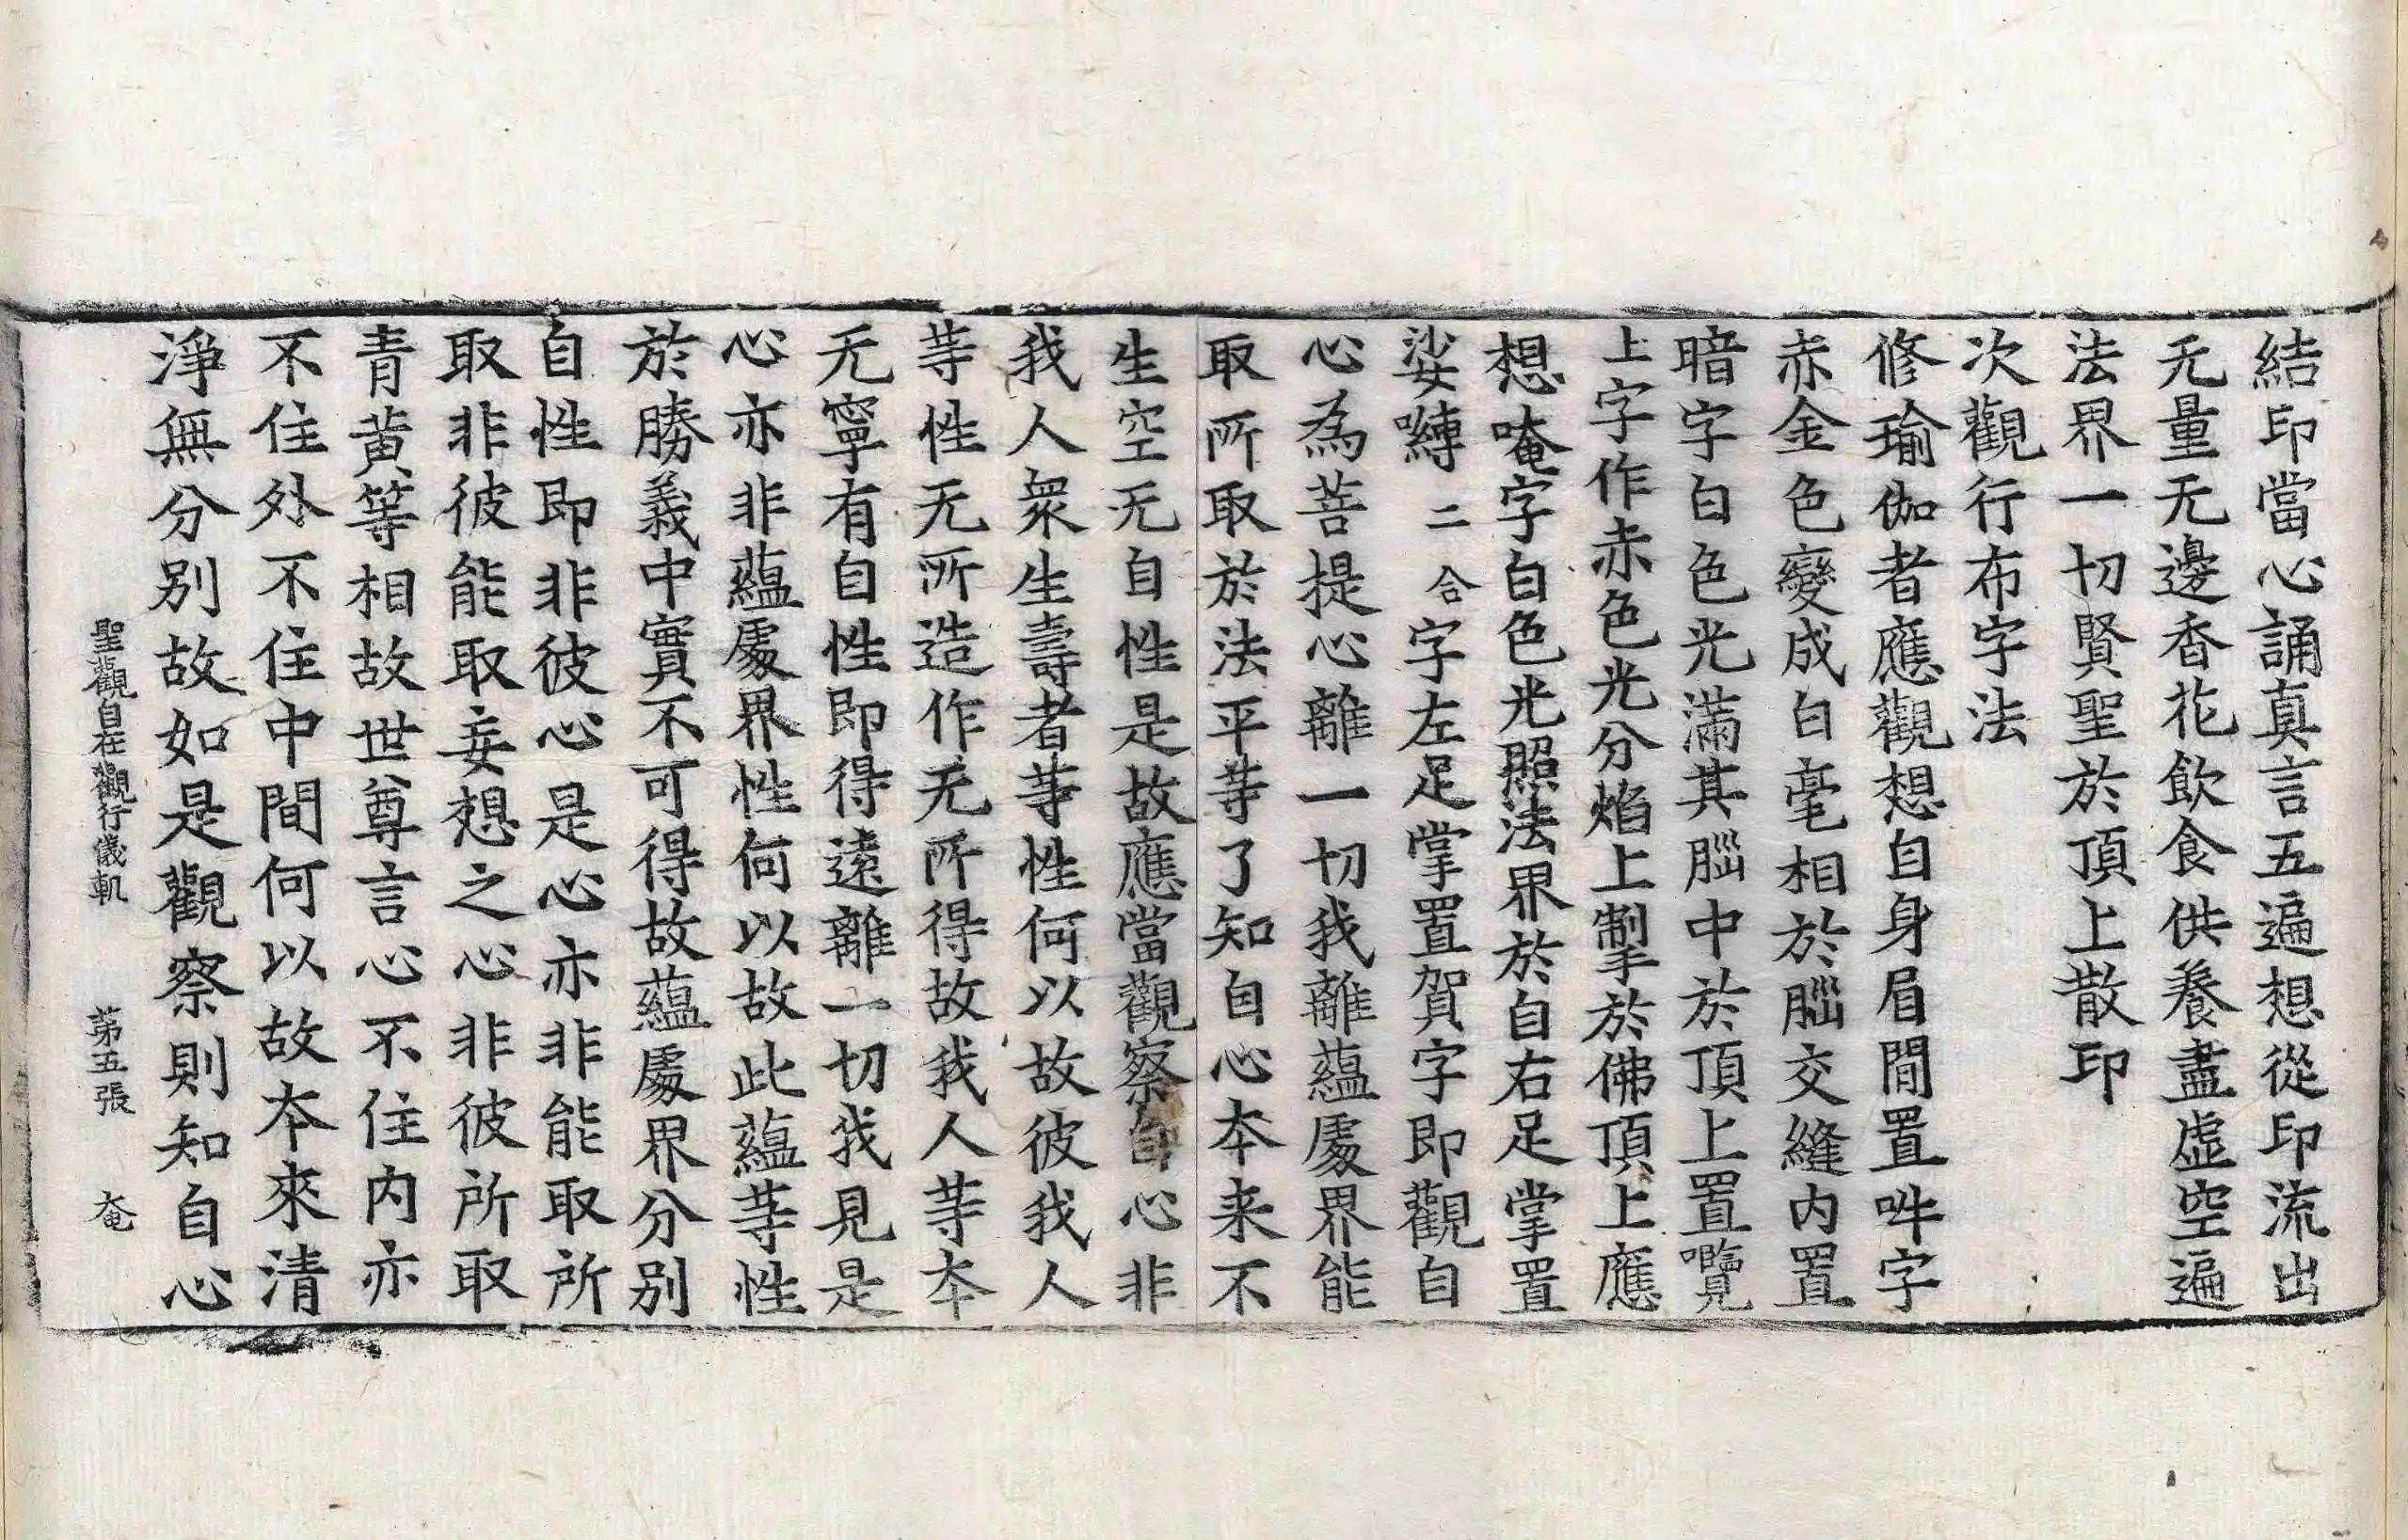 結印當心誦真言五遍想從印流出
无量无邊香花飲食供養盡虛空遍
法界一切賢聖於頂上散印
次觀行布字法
修瑜伽者應觀想自身眉間置吽字
赤金色變成白毫相於𦛁交縫内置
暗字白色光滿其𦛁中於頂上置㘕
上字作赤色光分焰上掣於佛頂上應
想唵字白色光照法界於自右足掌置
娑嚩二合字左足掌置賀字即觀自
心為菩提心離一切我離蘊處界能
取所取於法平等了知自心本来不
生空无自性是故應當觀察自心非
我人衆生壽者等性何以故彼我人
等性无所造作无所得故我人等本
无寧有自性即得遠離一切我見是
心亦非蘊處界性何以故此蘊等性
於勝義中實不可得故蘊處界分别
自性即非彼心是心亦非能取所
取非彼能取妄想之心非彼所取
青黄等相故世尊言心不住内亦
不住外不住中間何以故本來清
淨無分别故如是觀察則知自心
聖觀自在觀行儀軌 苐五張 奄